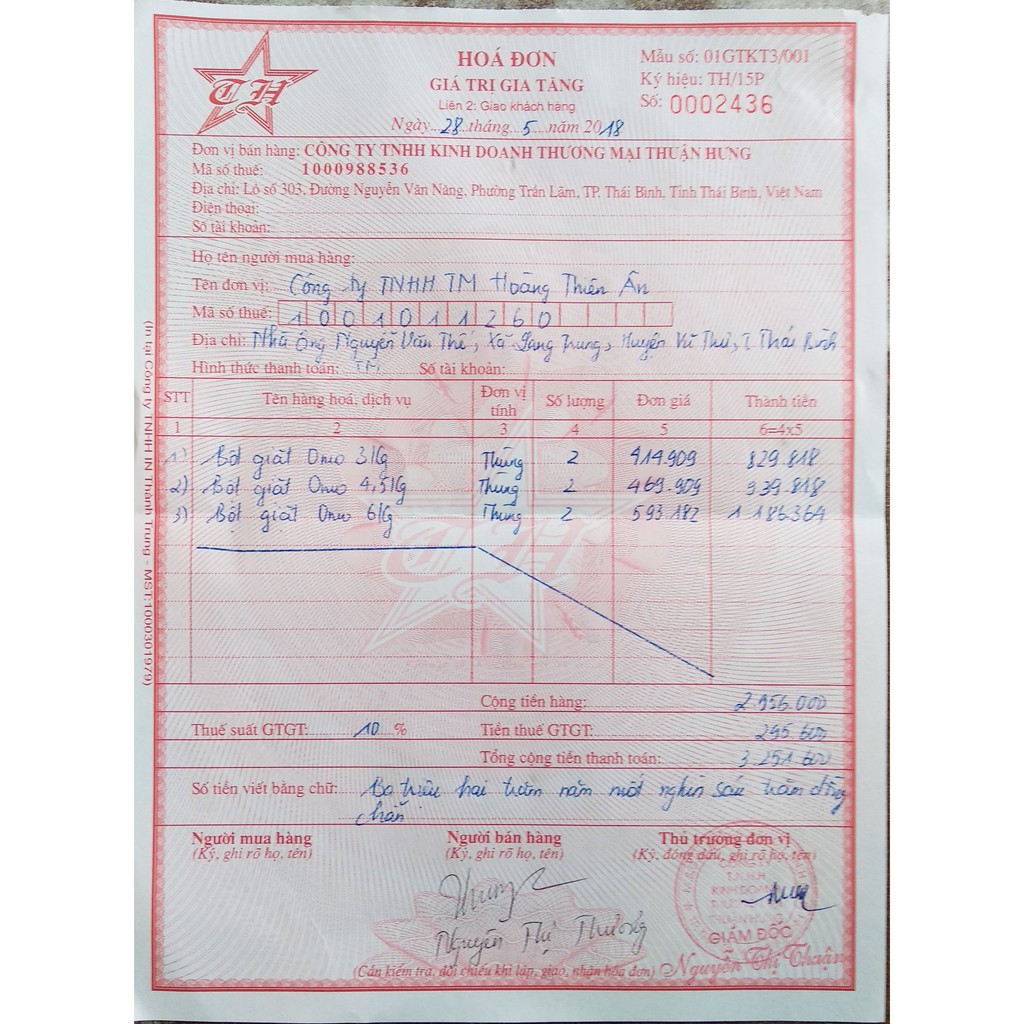 TH
HOÁ ĐƠN
GIÁ TRỊ GIA TĂNG
Liên 2: Giao khách hàng
Ngày 28 tháng 5 năm 2018
Mẫu số: 01GTKT3/001
Ký hiệu: TH/15P
Số: 0002436
Đơn vị bán hàng: CÔNG TY TNHH KINH DOANH THƯƠNG MẠI THUẬN HƯNG
Mã số thuế: 1000988536
Địa chỉ: Lô số 303, Đường Nguyễn Văn Năng, Phường Trần Lãm, TP. Thái Bình, Tỉnh Thái Bình, Việt Nam
Điện thoại:
Số tài khoản:
Họ tên người mua hàng:
Tên đơn vị: Công ty TNHH TM Hoàng Thiên Ân
Mã số thuế: 1001011260
Địa chỉ: Nhà Ông Nguyễn Văn Thế, Xã Song Lãng, Huyện Vũ Thư, T Thái Bình
Hình thức thanh toán: TM Số tài khoản:
STT Tên hàng hoá, dịch vụ Đơn vị tính Số lượng Đơn giá Thành tiền
1 2 3 4 5 6=4x5
1) Bột giặt Omo 3Kg Thùng 2 414.909 829.818
2) Bột giặt Omo 4,5Kg Thùng 2 469.909 939.818
3) Bột giặt Omo 6Kg Thùng 2 593.182 1.186.364
Cộng tiền hàng: 2.956.000
Thuế suất GTGT: 10 % Tiền thuế GTGT: 295.600
Tổng cộng tiền thanh toán: 3.251.600
Số tiền viết bằng chữ: Ba triệu hai trăm năm mốt nghìn sáu trăm đồng
chẵn
Người mua hàng Người bán hàng Thủ trưởng đơn vị
(Ký, ghi rõ họ, tên) (Ký, ghi rõ họ, tên) (Ký, đóng dấu, ghi rõ họ, tên)
Nguyễn Thị Thương
GIÁM ĐỐC
Nguyễn Thị Thuận
(Cần kiểm tra, đối chiếu khi lập, giao, nhận hóa đơn)
(In tại Công ty TNHH IN Thành Trung - MST:1000301979)